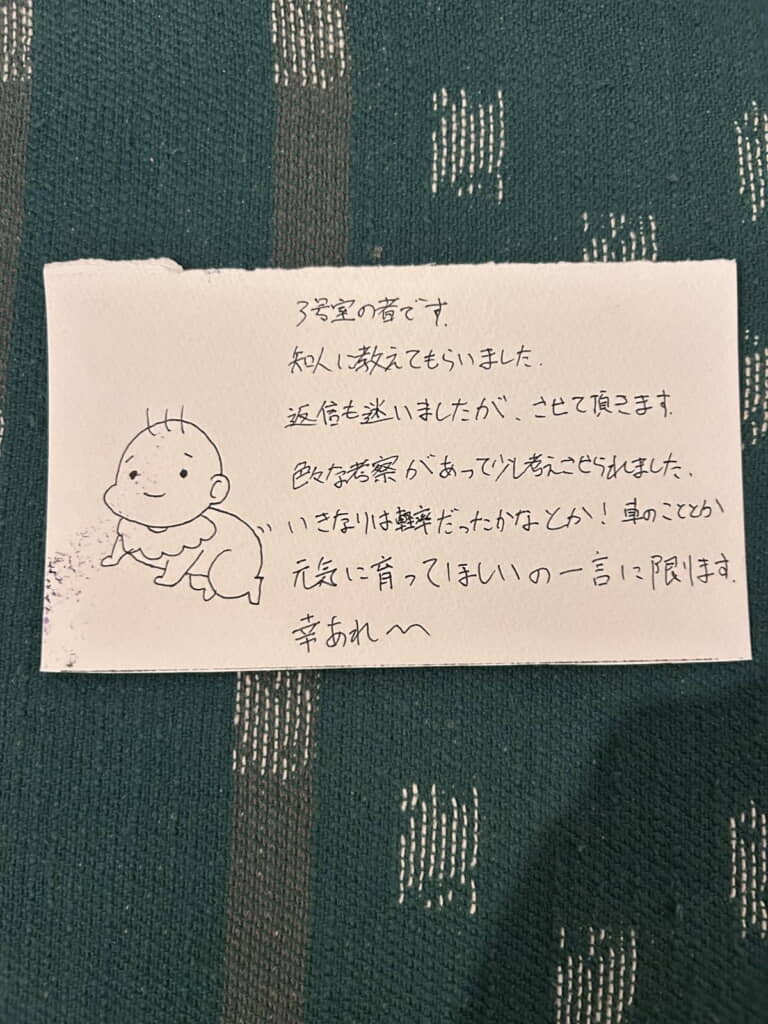 3号室の者です.
知人に教えてもらいました.
返信も迷いましたが、させて頂きます.
色々な考察があって少し考えさせられました.
いきなりは軽率だったかなとか！車のこととか
元気に育ってほしいの一言に限ります.
幸あれ〜〜